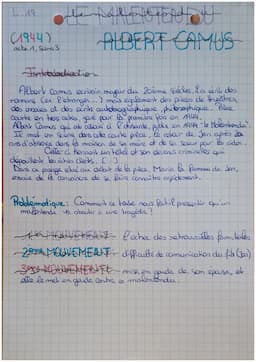 L.19
LE MALENTENDU
(1944)
acte 1, scène 3
ALBERT CAMUS
Introduction
Albert Camus écrivain majeur du 20ième siècle. Il a écrit des
romans (ex: l'étranger...) mais également des pièces de théâtres,
des essais et des écrits philosophiques. Pièce
écrite en trois actes, joué pour la première fois en 1944.
Albert Camus
Il met en scène dans cette pièce, le retour de Jan après
ans d'absence dans la maison de sa mère et de sa soeur pour les aider.
Celles-ci tiennent un hôtel et sont devenues criminelles qui
dépouillent les riches clients. [...]
Dans ce passage situé au début de la pièce, Maria la femme de Jan,
essaie de le convaincre de se faire connaître rapidement.
Problématique: Comment ce texte nous fait-il pressentir qu'un
malentendu va aboutir à une tragédie?
1er MOUVEMENT: l'échec des retrouvailles familiales
2ème MOUVEMENT: difficulté de communication du fils (Jan)
3ème MOUVEMENT: mise en garde de son épouse, et
elle le met en garde contre ce malentendu.